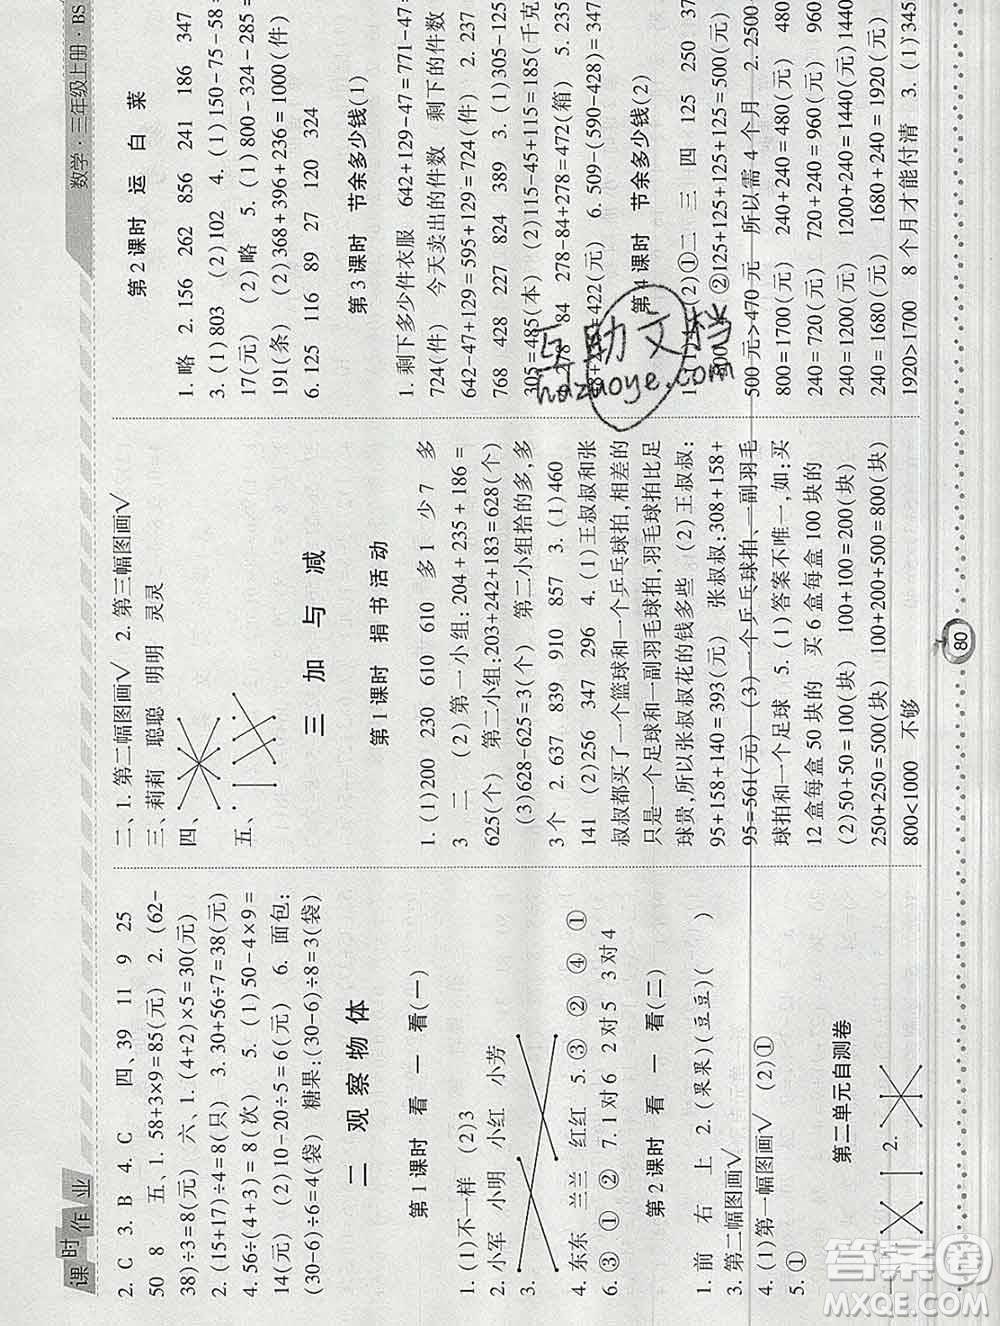 课时作业
数学·三年级上册·BS
2. C 3. B 4. C 四、39 11 9 25
50 8 五、1. 58+3×9=85(元) 2. (62-
38)÷3=8(元) 六、1. (4+2)×5=30(元)
2. (15+17)÷4=8(只) 3. 30+56÷7=38(元)
4. 56÷(4+3)=8(次) 5. (1)50-4×9=
14(元) (2)10-20÷5=6(元) 6. 面包:
(30-6)÷6=4(袋) 糖果:(30-6)÷8=3(袋)
二 观察物体
第1课时 看一看(一)
1. (1)不一样 (2)3
2. 小军 小明 小红 小芳
3.
4. 东东 兰兰 红红 5. ③ ② ④ ①
6. ③ ① ② 7. 1对6 2对5 3对4
第2课时 看一看(二)
1. 前 右 上 2. (果果)(豆豆)( )
3. 第二幅图画√
4. (1)第一幅图画√ (2)①
5. ①
第二单元自测卷
一、1. 2.
二、1. 第二幅图画√ 2. 第三幅图画√
三、莉莉 聪聪 明明 灵灵
四、
五、
三 加与减
第1课时 捐书活动
1. (1)200 230 610 610 多1 少7 多
3 二 (2)第一小组:204+235+186=
625(个) 第二小组:203+242+183=628(个)
(3)628-625=3(个) 第二小组拾的多,多
3个 2. 637 839 910 857 3. (1)460
141 (2)256 347 296 4. (1)王叔叔和张
叔叔都买了一个篮球和一个乒乓球拍,相差的
只是一个足球和一副羽毛球拍,羽毛球拍比足
球贵,所以张叔叔花的钱多些 (2)王叔叔:
95+158+140=393(元) 张叔叔:308+158+
95=561(元) (3)一个乒乓球拍、一副羽毛
球拍和一个足球 5. (1)答案不唯一,如:买
12盒每盒50块的 买6盒每盒100块的
(2)50+50=100(块) 100+100=200(块)
250+250=500(块) 100+200+500=800(块)
800<1000 不够
第2课时 运白菜
1. 略 2. 156 262 856 241 186 347
3. (1)803 (2)102 4. (1)150-75-58=
17(元) (2)略 5. (1)800-324-285=
191(条) (2)368+396+236=1000(件)
6. 125 116 89 27 120 324
第3课时 节余多少钱(1)
1. 剩下多少件衣服 642+129-47=771-47=
724(件) 今天卖出的件数 剩下的件数
642-47+129=595+129=724(件) 2. 237
768 428 227 824 389 3. (1)305-125
305=485(本) (2)115-45+115=185(千克
78 84 278-84+278=472(箱) 5. 235
=422(元) 6. 509-(590-428)=347
第4课时 节余多少钱(2)
(2)①二 三 四 125 250 37
②125+125+125+125=500(元)
500元>470元 所以需4个月 2. 2500-
800=1700(元) 240+240=480(元) 480
240=720(元) 720+240=960(元) 960
240=1200(元) 1200+240=1440(元)1440
240=1680(元) 1680+240=1920(元)
1920>1700 8个月才能付清 3. (1)345
80
互助文档
hdzuoye.com
答案圈
MXQE.COM